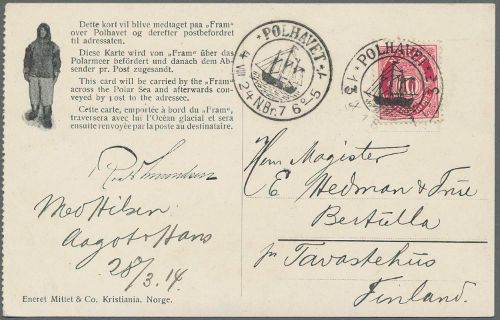 Dette kort vil blive medtaget paa „Fram"
over Polhavet og derefter postbefordret
til adressaten.
Diese Karte wird von „Fram" über das
Polarmeer befördert und danach dem Ab-
sender pr. Post zugesandt.
This card will be carried by the „Fram"
across the Polar Sea and afterwards con-
veyed by post to the adressee.
Cette carte, emportée à bord du „Fram",
traversera avec lui l'Océan glacial et sera
ensuite renvoyée par la poste au destinataire.
POLHAVET
24 NBr. 7 6°-5
POLHAVET
10
Med Hilsen
Aagot & Hans
28/3. 14
Herr Magister
E Hedman & Frue
Bertulla
pr Tavastehus
Finland.
Eneret Mittet & Co. Kristiania, Norge.